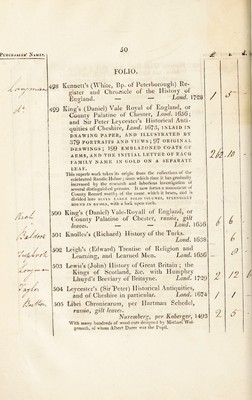 50
PURCHASERS' NAMES.
£ s. d.
FOLIO.
Longman 498 Kennett's (White, Bp. of Peterborough) Re-
gister and Chronicle of the History of
England. — — Lond. 1728 1 5
do 499 King's (Daniel) Vale Royal of England, or
County Palatine of Chester, Lond. 1656;
and Sir Peter Leycester's Historical Anti-
quities of Cheshire, Lond. 1673, INLAID IN
DRAWING PAPER, AND ILLUSTRATED BY
579 PORTRAITS AND VIEWS; 97 ORIGINAL
DRAWINGS; 199 EMBLAZONED COATS OF
ARMS, AND THE INITIAL LETTER OF EACH
FAMILY NAME IN GOLD ON A SEPARATE
LEAF. 262 10
This superb work takes its origin from the collections of the
celebrated Randle Holme; since which time it has gradually
increased by the research and laborious investigation of
several distinguished persons. It now forms a monument of
County Record worthy of the name which it bears, and is
divided into
BOUND IN RUSSIA, with a lock upon each.
500 King's (Daniel) Vale-Royall of England, or
County Palatine of Chester, russia, gilt
leaves. — — Lond. 1656 6 6
501 Knolles's (Richard) History of the Turks.
Lond. 1638 6
502 Leigh's (Edward) Treatise of Religion and
Learning, and Learned Men. Lond. 1656 8
Longman 503 Lewis's (John) History of Great Britain; the
Kings of Scotland, &c. with Humphry
Lhuyd's Breviary of Britayne. Lond. 1729 2 12 6
Taylor 504 Leycester's (Sir Peter) Historical Antiquities,
and of Cheshire in particular. Lond. 1674 1 1
505 Libri Chronicarum, per Hartman Schedel,
russia, gilt leaves.
Nuremberg, per Koberger, 1493 2 5
With many hundreds of wood-cuts designed by Michael Wol-
gemuth, of whom Albert Durer was the Pupil.